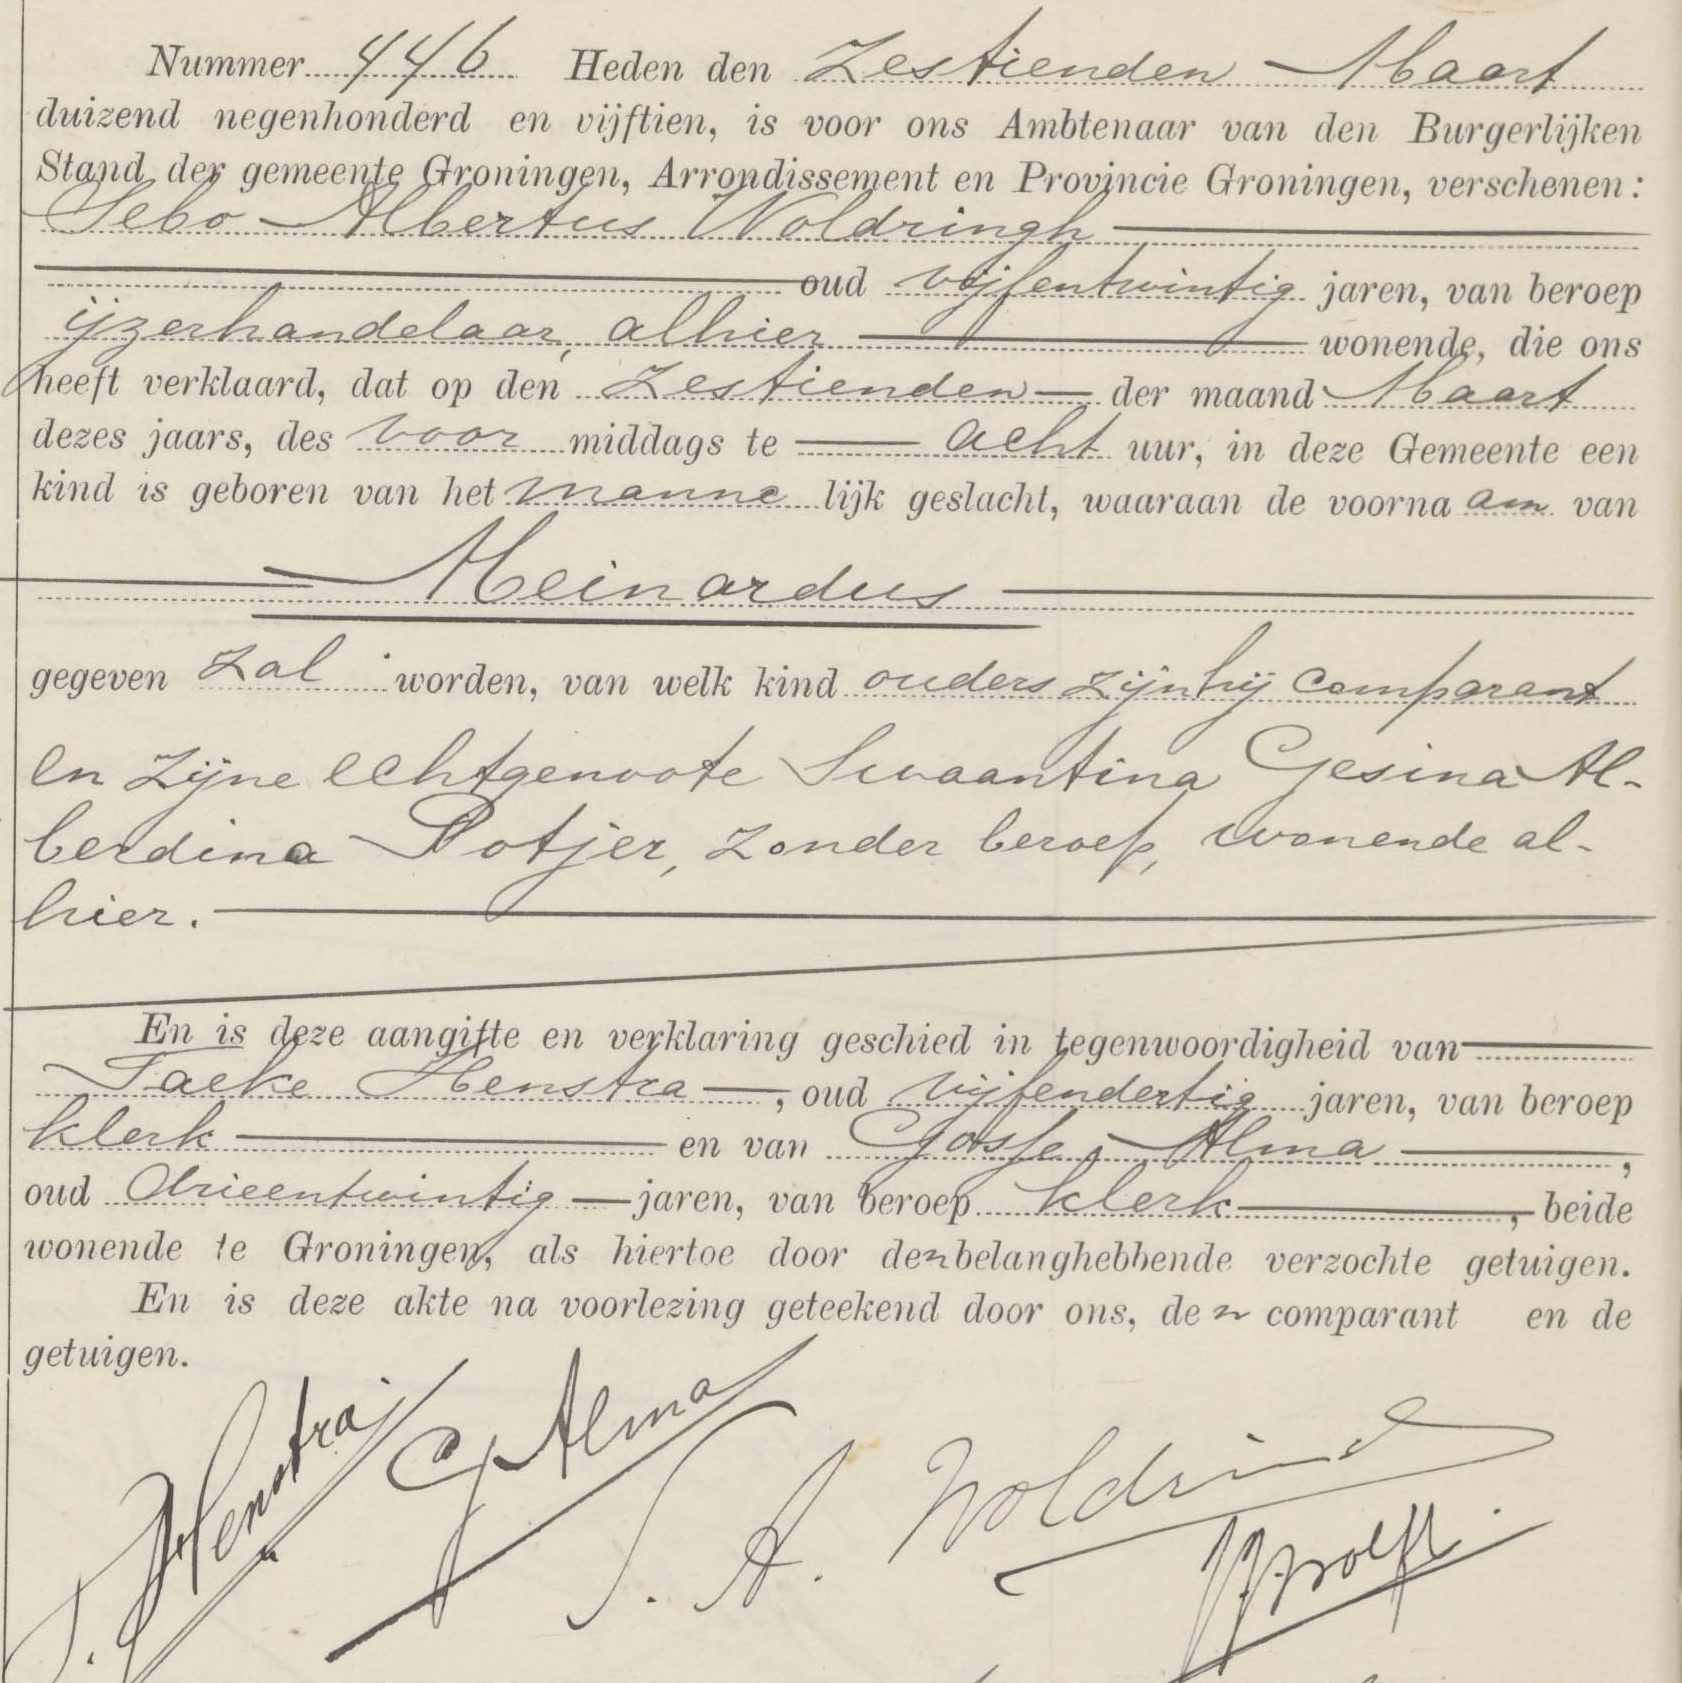 Nummer 446 Heden den Zestienden Maart
duizend negenhonderd en vijftien, is voor ons Ambtenaar van den Burgerlijken
Stand der gemeente Groningen, Arrondissement en Provincie Groningen, verschenen:
Sebo Albertus Woldringh
oud vijfentwintig jaren, van beroep
ijzerhandelaar, alhier wonende, die ons
heeft verklaard, dat op den Zestienden der maand Maart
dezes jaars, des voor middags te acht uur, in deze Gemeente een
kind is geboren van het manne lijk geslacht, waaraan de voorna am van
Meinardus
gegeven zal worden, van welk kind ouders zijn hij comparant
en zijne echtgenoote Swaantina Gesina Al-
berdina Potjer, zonder beroep, wonende al-
hier.
En is deze aangifte en verklaring geschied in tegenwoordigheid van
Taeke Henstra, oud vijfendertig jaren, van beroep
klerk en van Gosse Alma,
oud drieentwintig jaren, van beroep klerk, beide
wonende te Groningen, als hiertoe door den belanghebbende verzochte getuigen.
En is deze akte na voorlezing geteekend door ons, den comparant en de
getuigen.
T. Henstra G Alma S. A. Woldringh